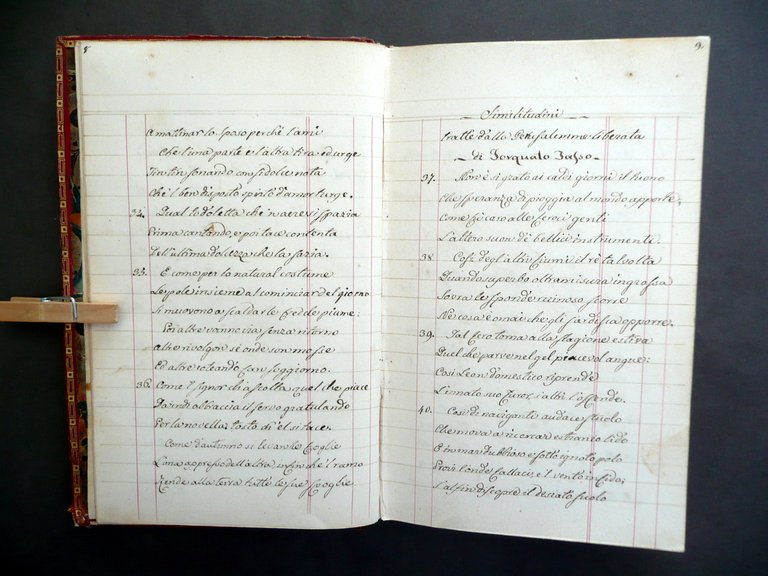 8
A mattinar lo sposo perchè l'ami
Che l'una parte e l'altra tira ed urge
Tin tin sonando con si dolce nota
Che'l ben disposto spirto d'amor turge.
34. Qual lodoletta che'n aere si spazia
Prima cantando, e poi tace contenta
Dell'ultima dolcezza che la sazia.
35. E come per lo natural costume
Le pole insieme al cominciar del giorno
Si muovono a scaldar le fredde piume:
Poi altre vanno via senza ritorno
Altre rivolgon sè onde son mosse
Ed altre roteando fan soggiorno.
36. Come'l signor ch'ascolta quel che piace
Da indi abbraccia il servo gratulando
Per la novella, tosto ch'el si tace.
Come d'autunno si levan le foglie
L'una appresso dell'altra, infin che'l ramo
Rende alla terra tutte le sue spoglie
9.
Similitudini
tratte dalla Gerusalemme liberata
di Torquato Tasso
37. Non è si grato ai caldi giorni il tuono
Che speranza di pioggia al mondo apporte,
Come fu caro alle feroci genti
L'altero suon de' bellici instrumenti.
38 Così degli altri fiumi il re talvolta
Quando superbo oltra misura ingrossa
Sovra le sponde ruinoso scorre
Nè cosa è mai che gli s'ardisca opporre.
39. Tal fero torna alla stagione estiva
Quel che parve nel gel piacevol angue:
Così Leon domestico riprende
L'innato suo furor, s'altri l'offende.
40. Così di naviganti audace stuolo
Che mova a ricercar estranio lido
E in mar dubbioso e sotto ignoto polo
Provi l'onde fallaci, e'l vento infido;
S'alfin discopre il desiato suolo